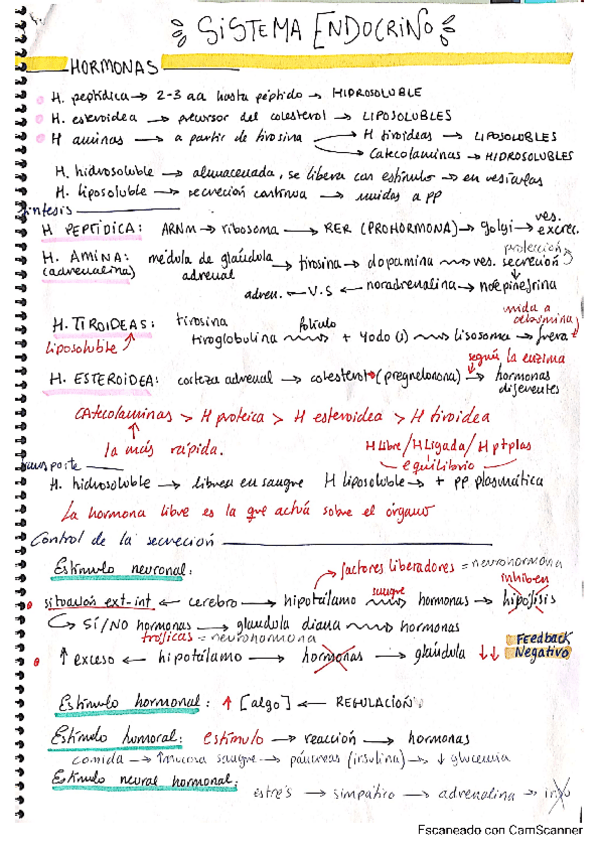 SISTEMA ENDOCRINO
HORMONAS
H. peptídica → 2-3 aa hasta péptido → HIDROSOLUBLE
H. esteroidea → precursor del colesterol → LIPOSOLUBLES
H aminas → a partir de tirosina → H tiroideas → LIPOSOLUBLES
Catecolaminas → HIDROSOLUBLES
H. hidrosoluble → almacenada, se libera con estímulo → en vesículas
H. liposoluble → secreción continua → unidas a pp
Síntesis
H PEPTÍDICA: ARNm → ribosoma → RER (PROHORMONA) → golgi → ves. excrec.
H. AMINA: (adrenalina) médula de glándula adrenal → tirosina → dopamina → ves. secreción protección
adren. ← V.S ← noradrenalina ← noepinefrina
H. TIROIDEAS: tirosina
liposoluble tiroglobulina folículo + yodo (I) → lisosoma → fuera
unida a
H. ESTEROIDEA: corteza adrenal → colesterol (pregnelonona) → hormonas diferentes
según la enzima
CAtecolaminas > H proteica > H esteroidea > H tiroidea
la más rápida.
H Libre / H Ligada / H ptplas
equilibrio
transporte
H. hidrosoluble → libre en sangre H liposoluble → + pp plasmática
La hormona libre es la que actúa sobre el órgano
Control de la secreción
Estímulo neuronal:
factores liberadores = neurohormona
inhiben
situación ext-int ← cerebro ← hipotálamo sangre hormonas → hipófisis
SÍ/NO hormonas → glándula diana hormonas
tróficas = neurohormona
↑ exceso ← hipotálamo → hormonas → glándula ↓↓ Feedback Negativo
Estímulo hormonal: ↑ [algo] ← REGULACIÓN
Estímulo humoral: estímulo → reacción → hormonas
comida → ↑ sangre → páncreas (insulina) → ↓ glucemia
Estímulo neural hormonal:
estrés → simpático → adrenalina →
Escaneado con CamScanner